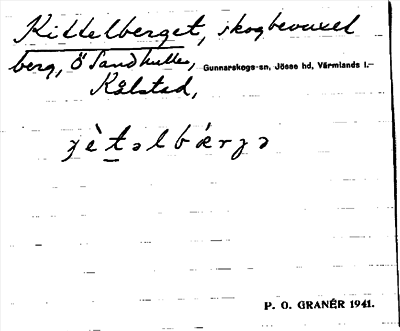 Kittelberget, skogbevuxet
berg, Ö Sandhulle, Gunnarskogs-sn, Jösse hd, Värmlands l.
Kålstad,
P. O. GRANÉR 1941.